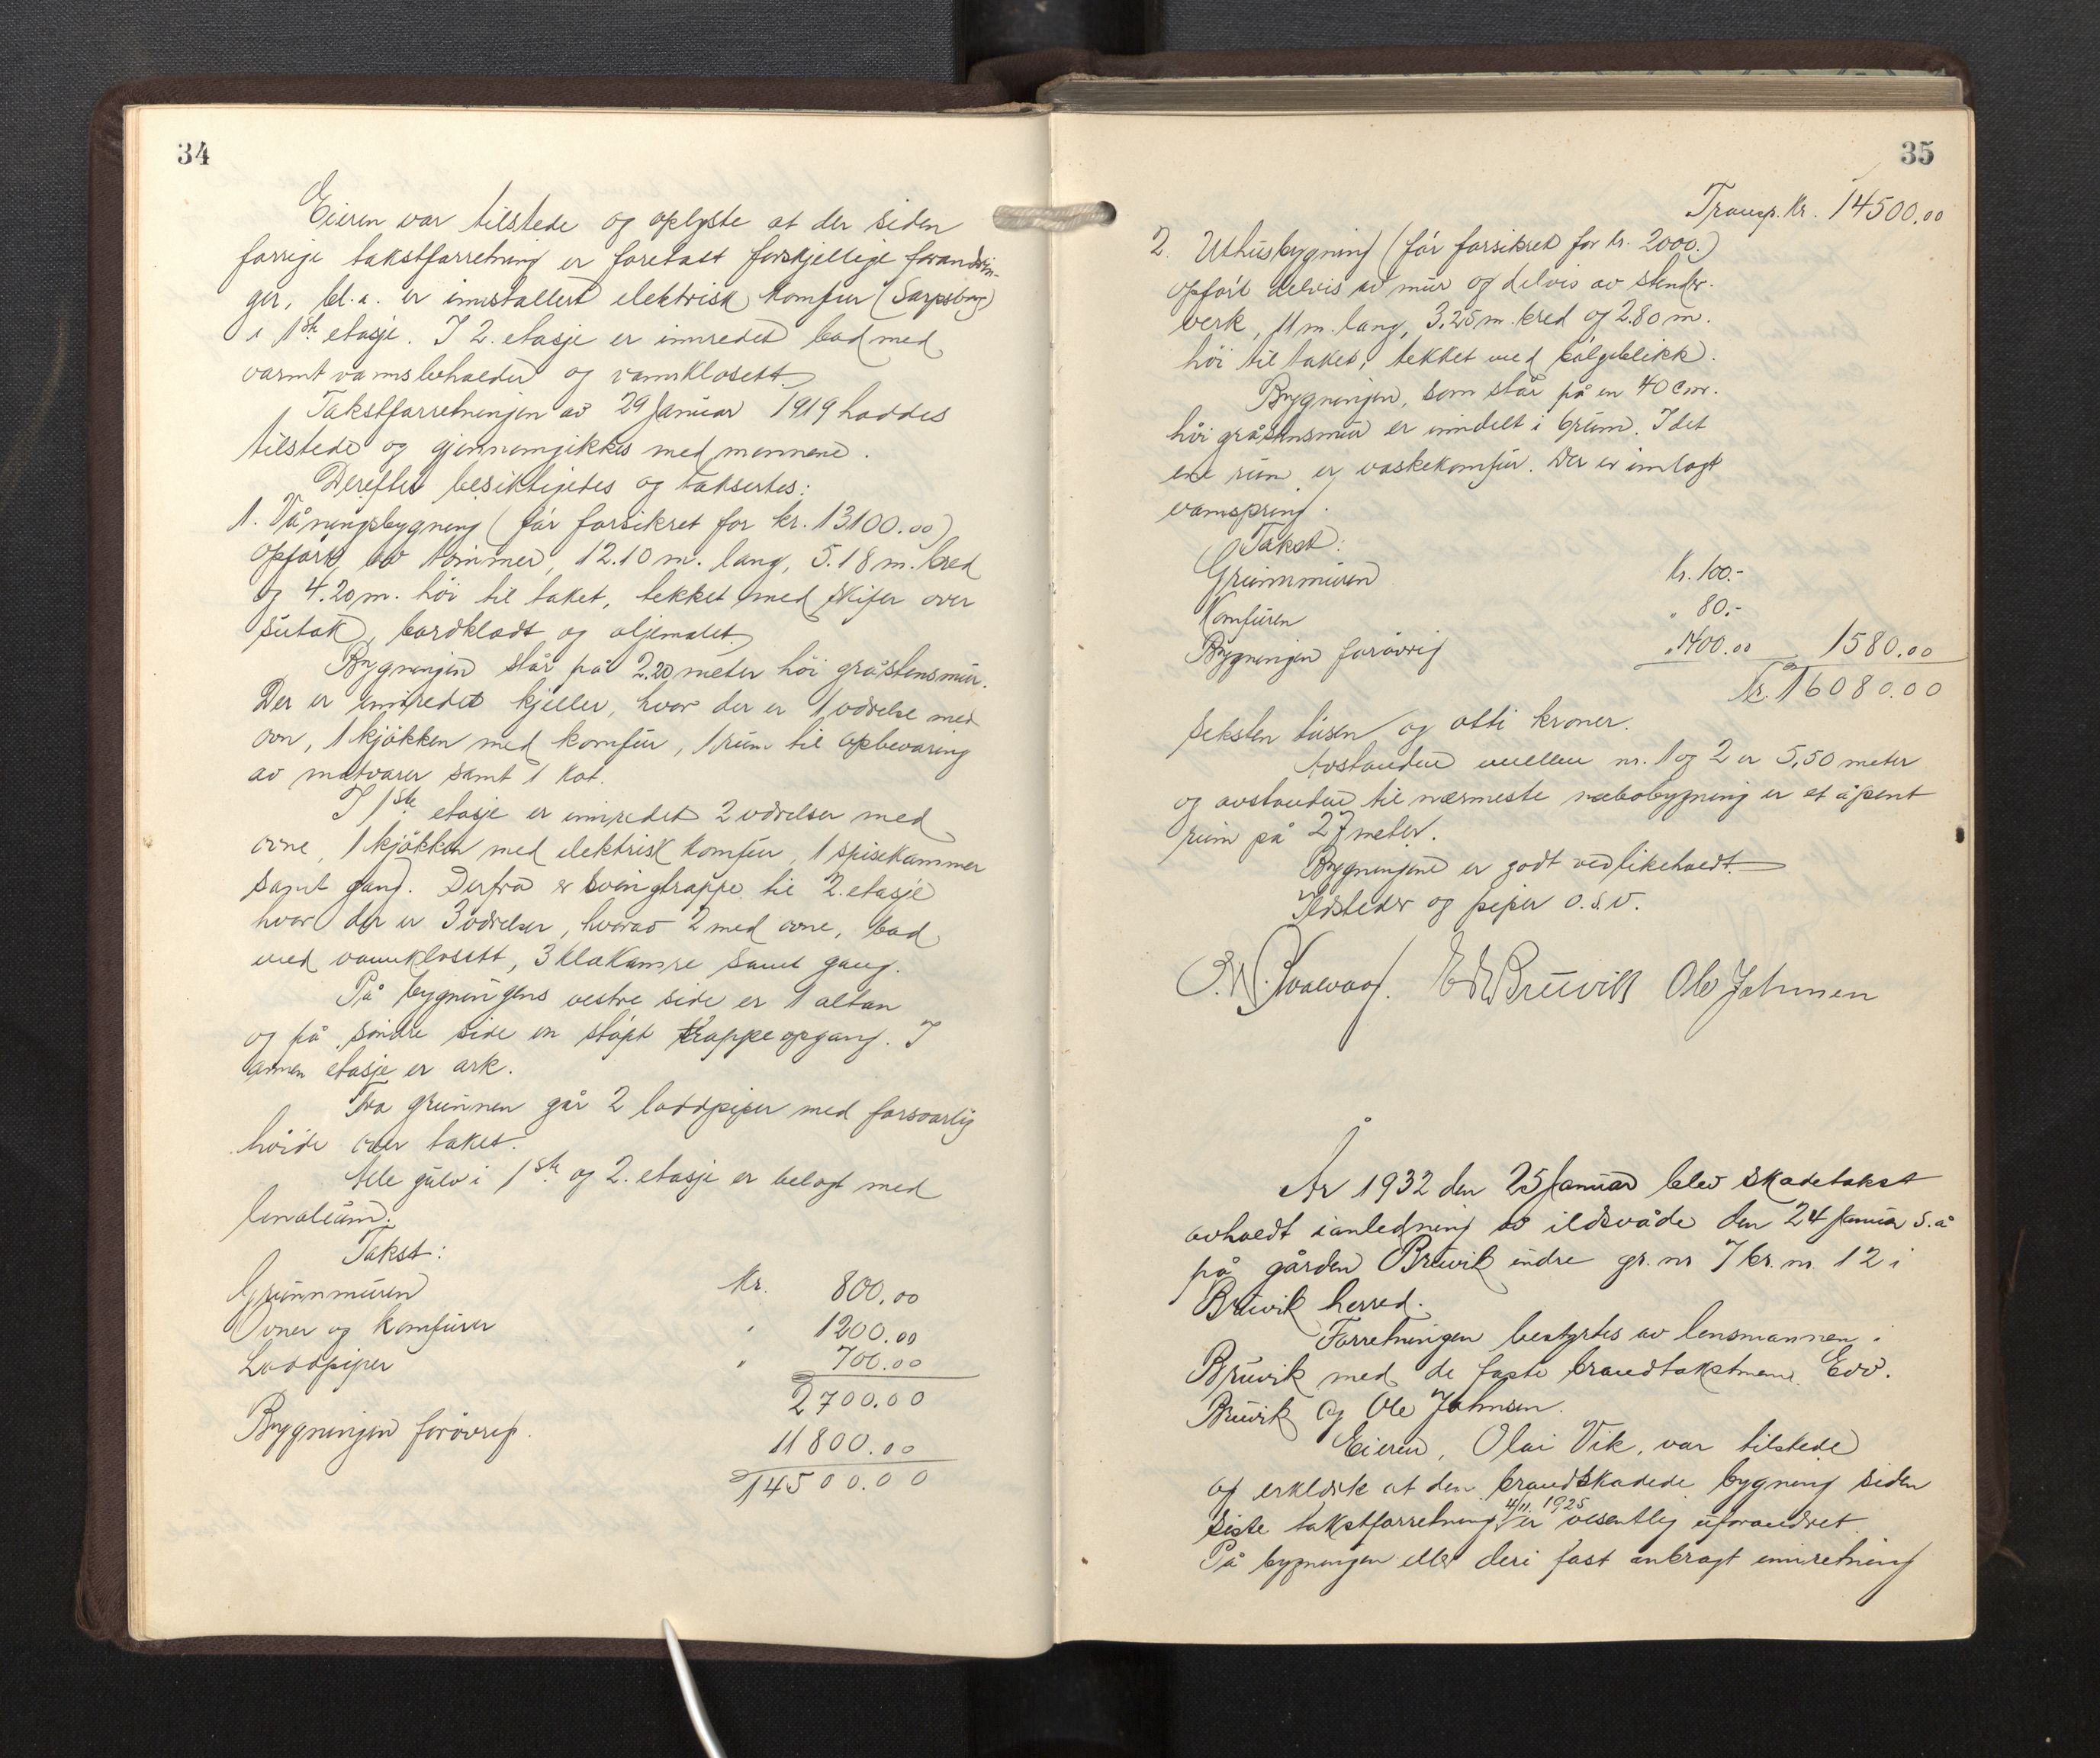 34
Eieren var tilstede og oplyste at der siden
forrige takstforretning er foretatt forskjellige forandrin-
ger, bl.a. er innstallert elektrisk komfur (Sarpsborg)
i 1ste etasje. I 2. etasje er innredet bad med
varmtvannsbeholder og vannklosett.
Takstforretningen av 29 Januar 1919 haddes
tilstede og gjennemgikkes med mennene.
Derefter besiktigedes og taksertes:
1. Våningsbygning (før forsikret for kr. 13100.00)
opført av tømmer, 12.10 m. lang, 5.18 m. bred
og 4.20 m. höi til taket, tekket med skifer over
sutak, bordkledt og oljemalet.
Bygningen står på 2.20 meter höi gråstensmur.
Der er innredet kjeller, hvor der er 1 værelse med
ovn, 1 kjökken med komfur, 1 rum til opbevaring
av matvarer samt 1 kot.
I 1ste etasje er innredet 2 værelser med
ovne, 1 kjökken med elektrisk komfur, 1 spisekammer
samt gang. Derfra er svingtrappe til 2. etasje
hvor der er 3 værelser, hvorav 2 med ovne, bad
med vannklosett, 3 klækamre samt gang.
På bygningens vestre side er 1 altan
og på söndre side en stöpt trappeopgang. I
annen etasje er ark.
Fra grunnen går 2 loddpiper med forsvarlig
höide over taket.
Alle gulv i 1ste og 2. etasje er belagt med
linoleum.
Takst:
Grunnmuren Kr. 800.00
Ovner og komfurer " 1200.00
Loddpiper " 700.00
2700.00
Bygningen forövrig. 11800.00
14500.00
35
Transp. kr. 14500.00
2. Uthusbygning (för forsikret for kr. 2000.)
opfört delvis av mur og delvis av stender-
verk, 11 m. lang, 3.25 m. bred og 2.80 m.
höi til taket, tekket med bölgeblikk.
Bygningen, som står på en 40 cm.
höi gråstensmur er inndelt i 6 rum. I det
ene rum er vaskekomfur. Der er innlagt
vannspring.
Takst:
Grunnmuren Kr. 100.-
Komfuren " 80.-
Bygningen forövrig " 1400.00 1580.00
Kr. 16080.00
seksten tusen og otti kroner.
Avstanden mellem nr. 1 og 2 er 5,50 meter
og avstanden til nærmeste nabobygning er et åpent
rum på 27 meter.
Bygningene er godt vedlikeholdt.
Ildsteder og piper o.s.v.
Bruvik Ole Johnsen
År 1932 den 25 Januar blev skadetakst
avholdt i anledning av ildsvåde den 24 Januar s.å
på gården Bruvik indre gr. nr 7 br. nr. 12 i
Bruvik herred.
Forretningen bestyrtes av lensmannen i
Bruvik med de faste brandtakstmenn Edv.
Bruvik og Ole Johnsen.
Eieren, Olai Vik, var tilstede
og erklærte at den brandskadede bygning siden
siste takstforretning 4/11. 1925 er vesentlig uforandret.
På bygningen eller deri fast anbragt innretning